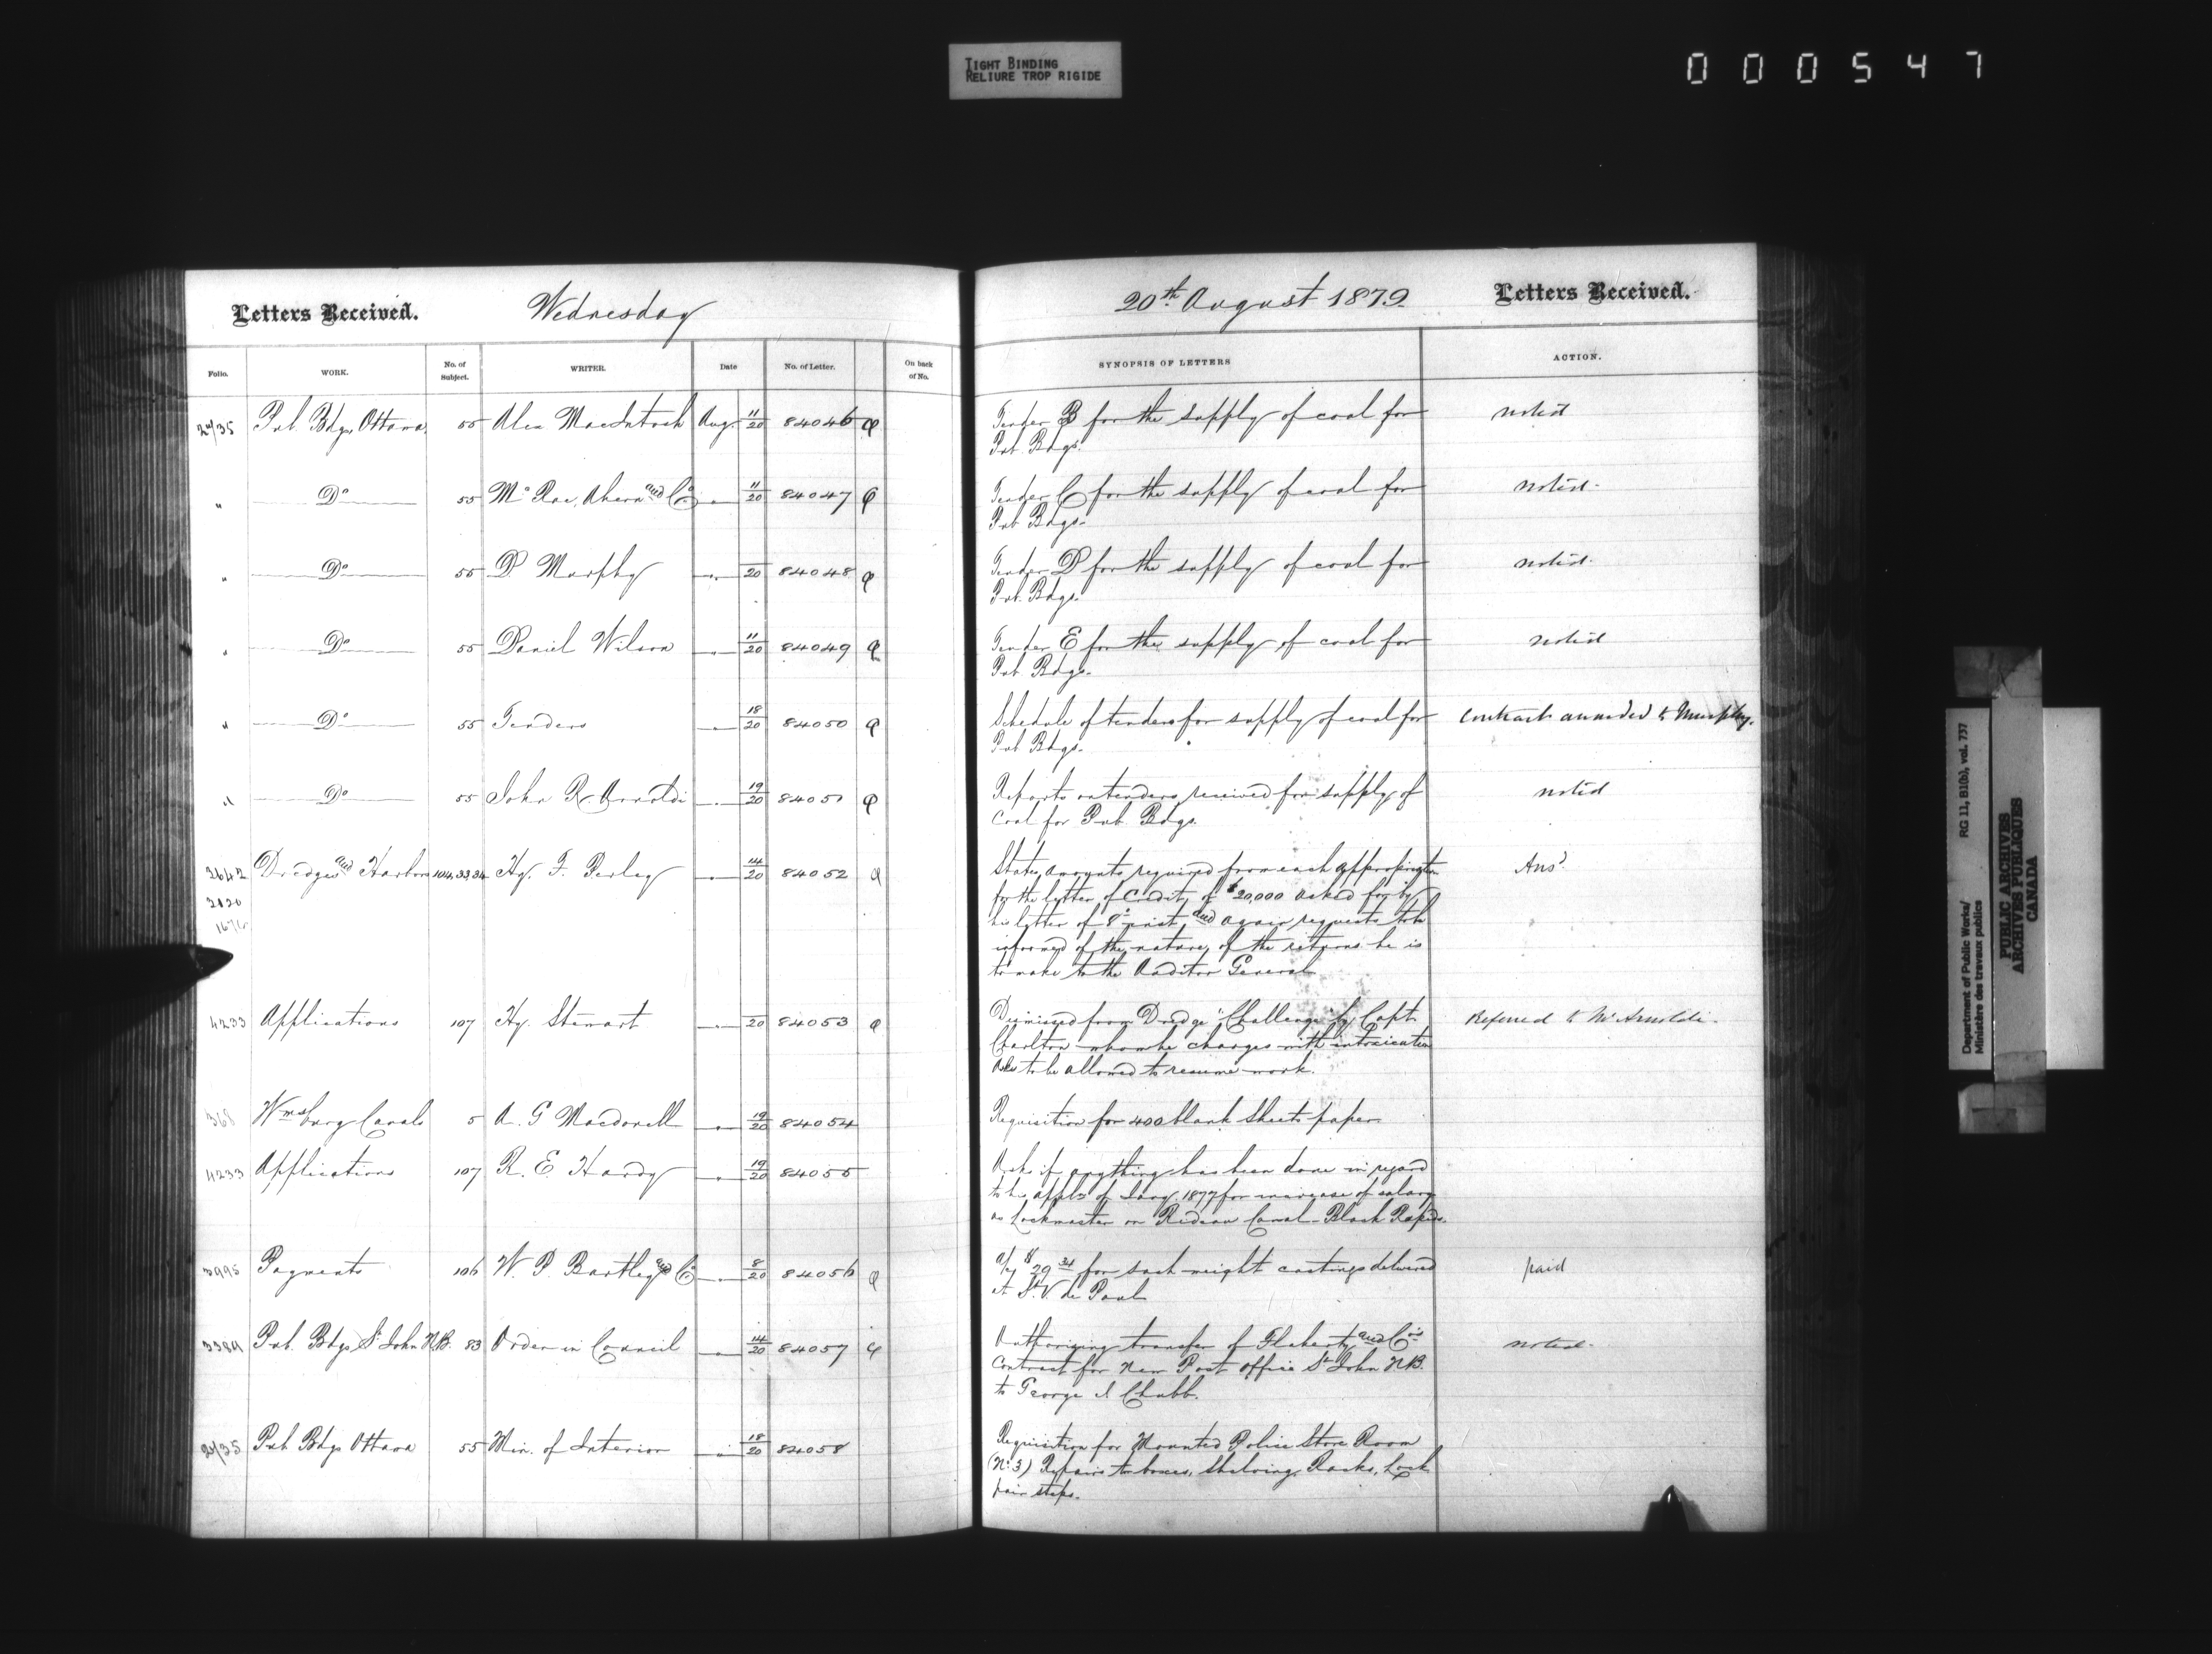 TIGHT BINDING
RELIURE TROP RIGIDE
000547
Letters Received. Wednesday
20th August 1879 Letters Received.
Folio. WORK. No. of Subject. WRITER. Date No. of Letter. On back of No. SYNOPSIS OF LETTERS ACTION.
24/35 Pub. Bdgs, Ottawa. 55 Alex MacIntosh Aug. 11/20 84046 Tender B for the supply of coal for noted
Pub. Bdgs.
" Do 55 McRae, Ahern and Co " 11/20 84047 Tender C for the supply of coal for noted.
Pub Bdgs.
" Do 55 D Murphy " 20 84048 Tender D for the supply of coal for noted.
Pub. Bdgs.
" Do 55 Daniel Wilson " 11/20 84049 Tender E for the supply of coal for noted
Pub Bdgs.
" Do 55 Tenders " 18/20 84050 Schedule of tenders for supply of coal for Contract awarded to Murphy.
Pub Bdgs.
" Do 55 John R Arnoldi " 19/20 84051 Reports on tenders received for supply of noted
Coal for Pub. Bdgs.
2642 Dredges and Harbors 104,33,34 Hy. F. Perley " 14/20 84052 States amounts required from each appropriation Ansd
2020 for the letter of Credit, of $20,000 asked for by
his letter of 8th inst, and again requests to be
informed of the nature of the returns he is
to make to the Auditor General
4233 Applications 107 Hy. Stewart " 20 84053 Dismissed from Dredge "Challenge" by Capt. Referred to Mr Arnoldi.
Charlton whom he charges with intoxication
Asks to be allowed to resume work.
368 Wmsburg Canals 5 A. G Macdonell " 19/20 84054 Requisition for 400 blank sheets paper.
4233 Applications 107 R. E. Hardy " 19/20 84055 Asks if anything has been done in regard
to his appln of Jany. 1877 for increase of salary
as Lockmaster on Rideau Canal - Black Rapids.
3995 Payments 106 W. P. Bartley and Co " 8/20 84056 a/c $29.34 for sash weight castings delivered paid
at St. V. de Paul
3389 Pub. Bdgs St John N.B. 83 Order in Council " 14/20 84057 Authorizing transfer of Flaherty and Co's noted.
Contract for New Post Office St John N.B.
to George A Chubb.
24/35 Pub Bdgs Ottawa 55 Min. of Interior " 18/20 84058 Requisition for Mounted Police Store Room
(No 3) Repairs to boxes, Shelving, Racks, Lock
pair steps.
Department of Public Works/ RG 11, B1(b), vol. 737
Ministère des travaux publics
PUBLIC ARCHIVES
ARCHIVES PUBLIQUES
CANADA